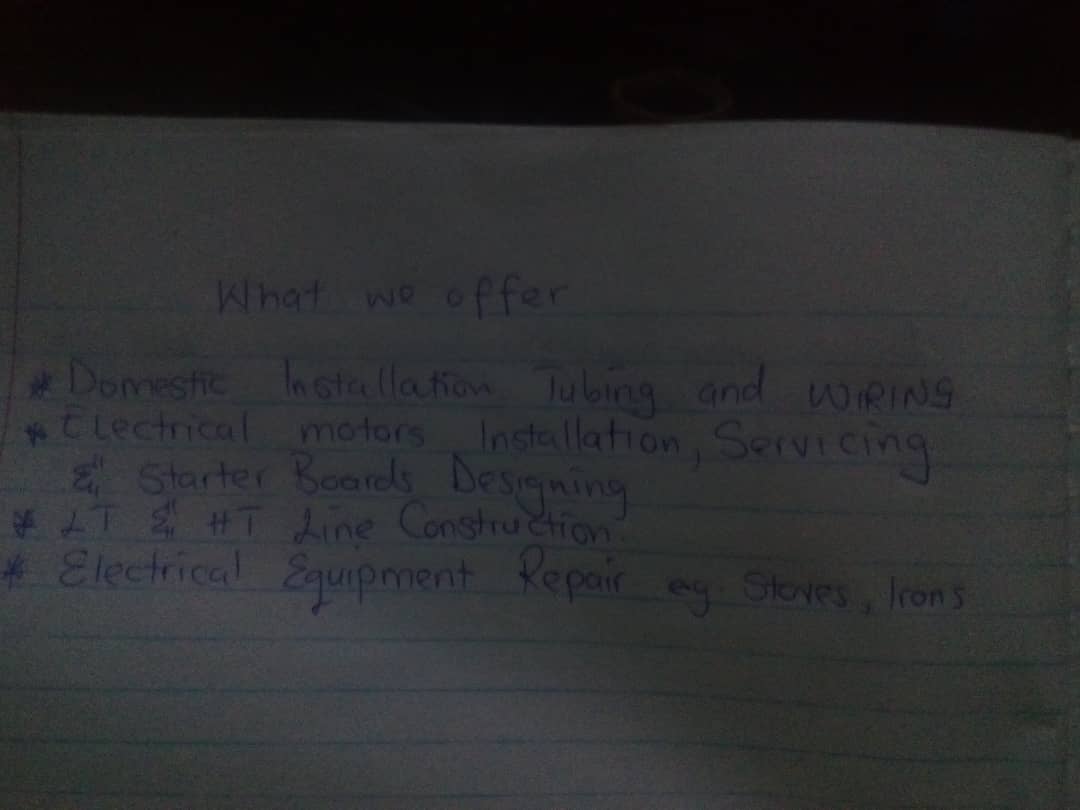 What we offer
* Domestic Installation Tubing and WIRING
* Electrical motors Installation, Servicing
& Starter Boards Designing
* LT & HT Line Construction.
* Electrical Equipment Repair eg. Stoves, Irons